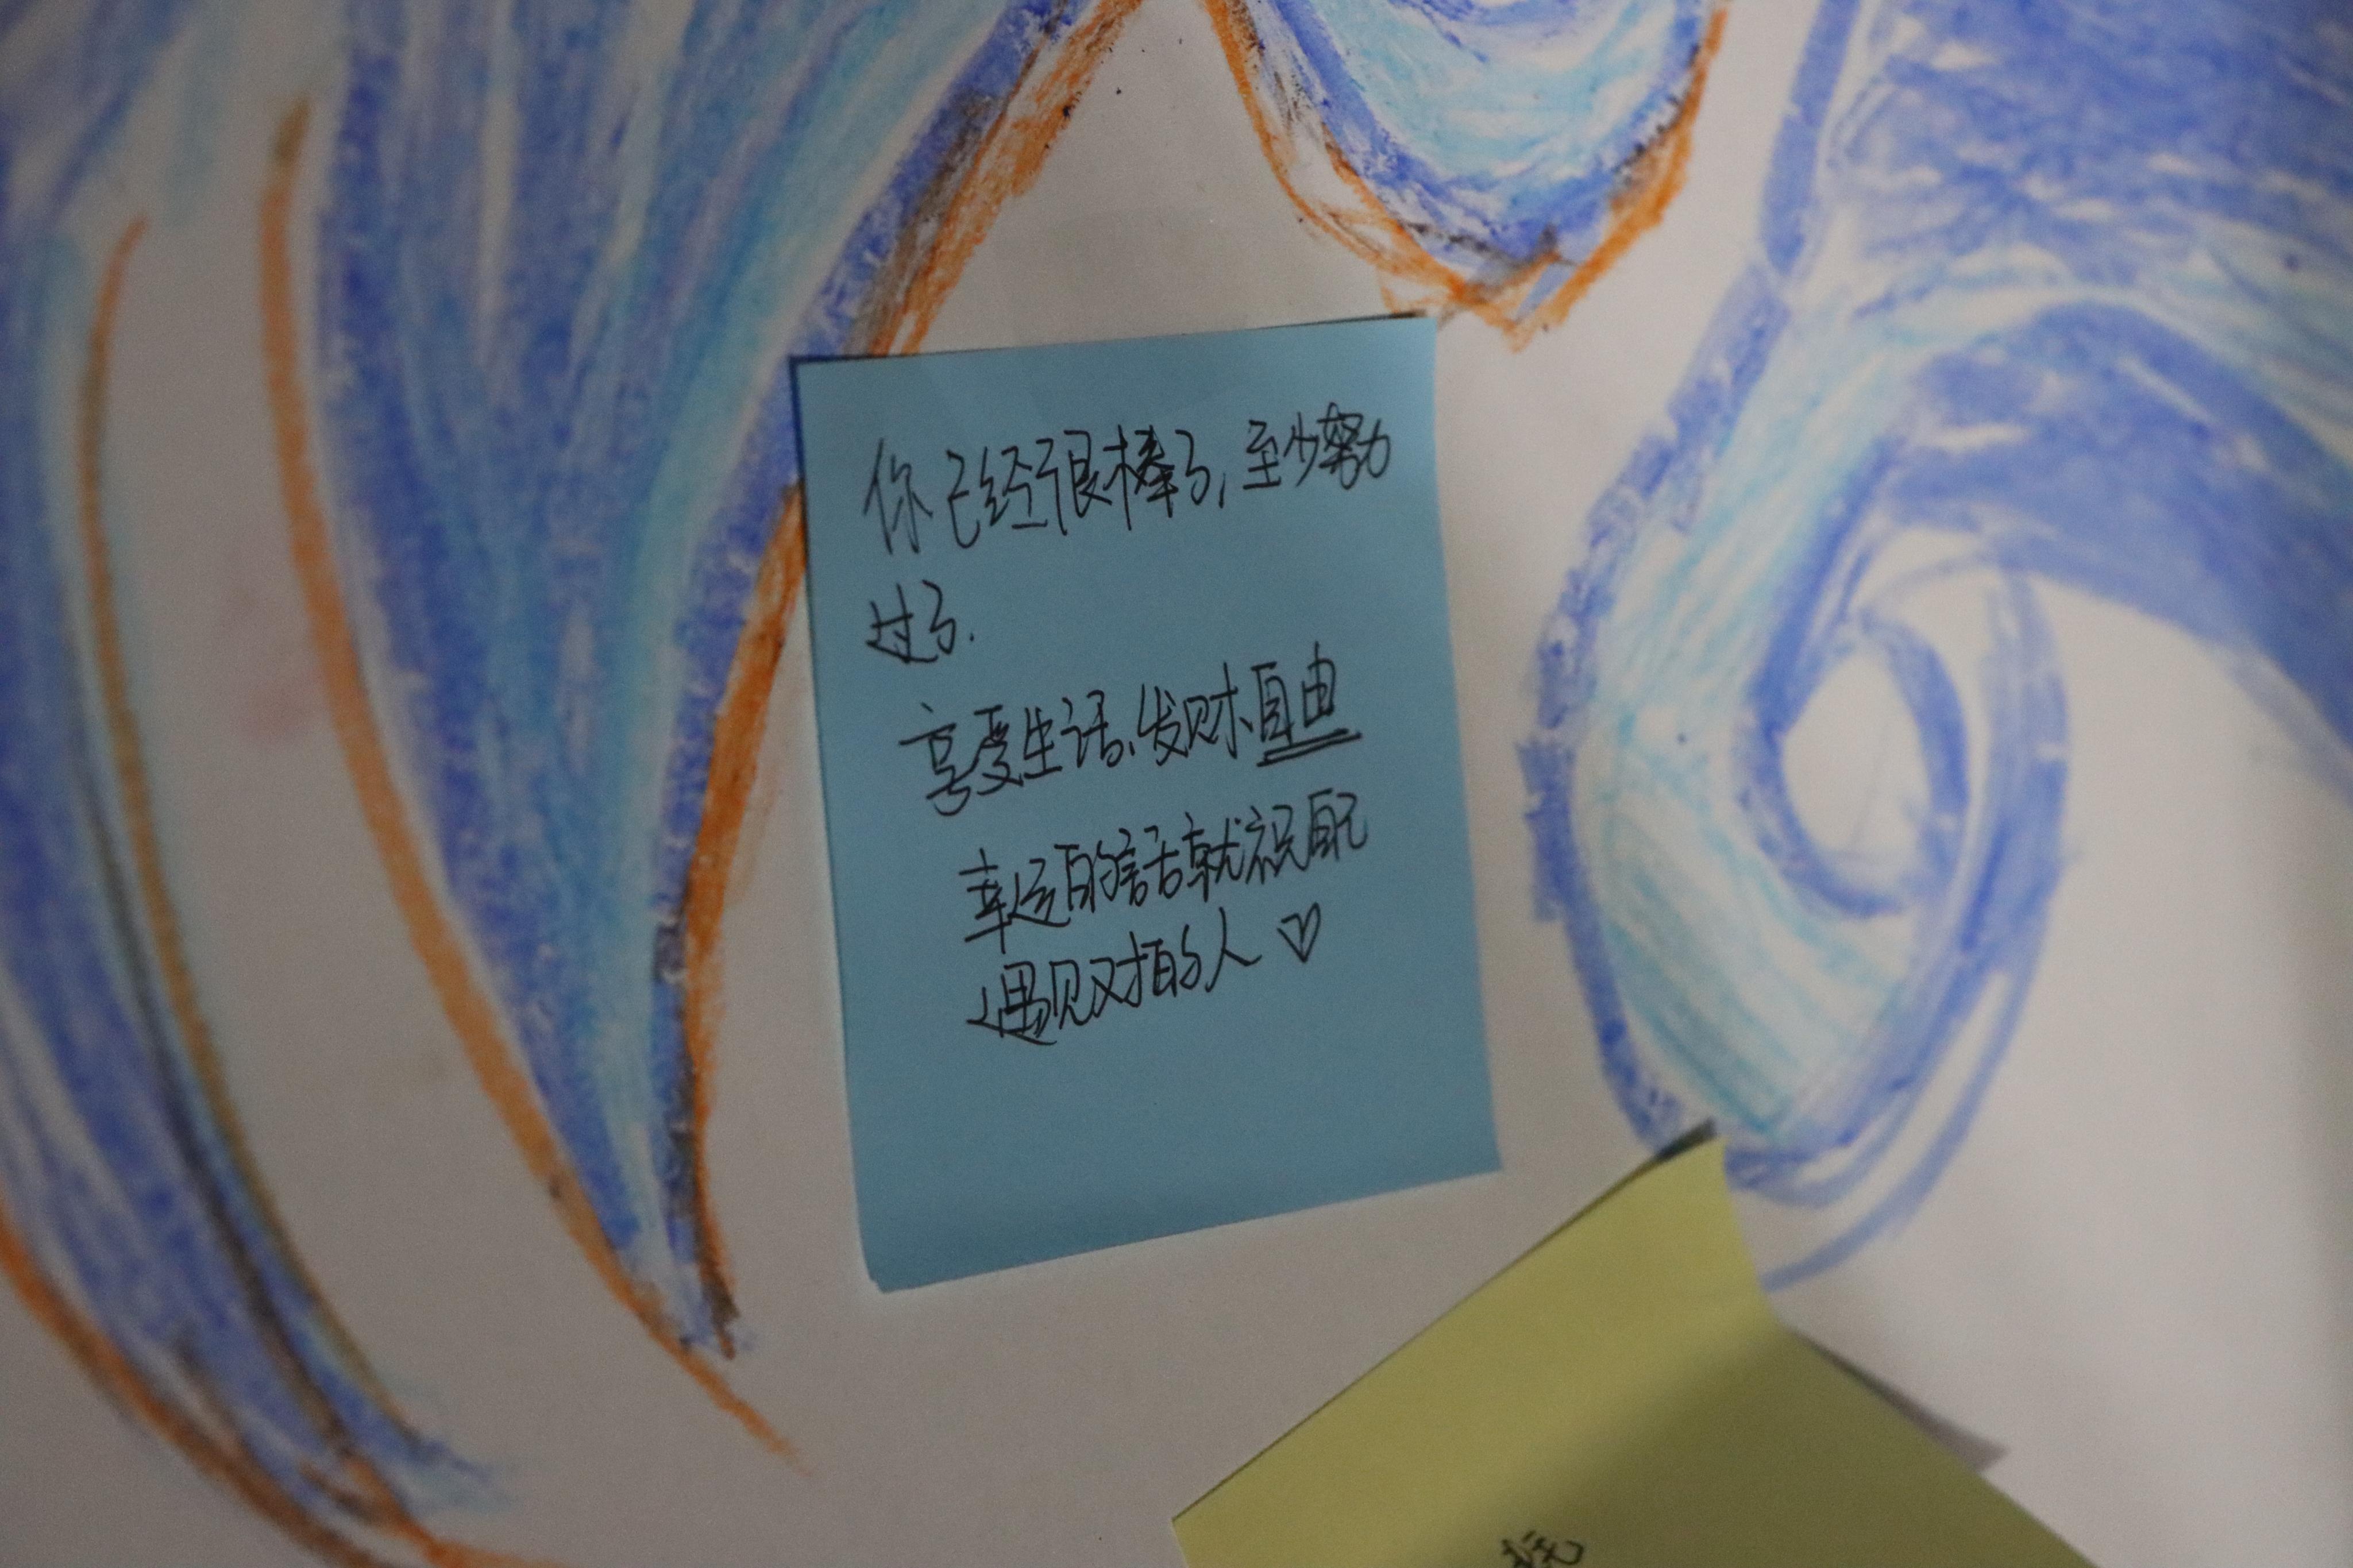 你已经很棒了,至少努力
过了.
享受生活、发财、自由
幸运的話就祝自己
遇见对的人♡